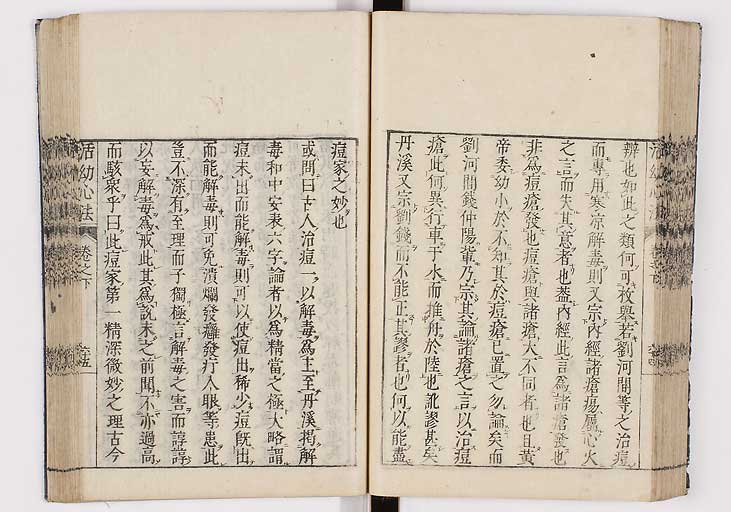 辨也如此之類何可枚舉若劉河間等之治痘
而專用寒凉解毒則又宗內經諸瘡瘍屬心火
之言而失其意者也葢內經此言爲諸瘡發也
非爲痘瘡發也痘瘡與諸瘡大不同者也且黃
帝委幼小於不知其於痘瘡已置之勿論矣而
劉河間錢仲陽輩乃宗其論諸瘡之言以治痘
瘡此何異行車于水而推舟於陸也訛謬甚矣
丹溪又宗劉錢而不能正其謬者也何以能盡
痘家之妙也
或問曰古人治痘一以解毒爲主至丹溪揭解
毒和中安表六字論者以爲精當之極大略謂
痘未出而能解毒則可以使痘出稀少痘旣出
而能解毒則可免潰爛發癰發疔入眼等患此
豈不深有至理而子獨極言解毒之害而諄諄
以妄解毒爲戒此其爲說未之前聞不亦過高
而駭衆乎曰此痘家第一精深微妙之理古今
活幼心法
卷之下
六十五